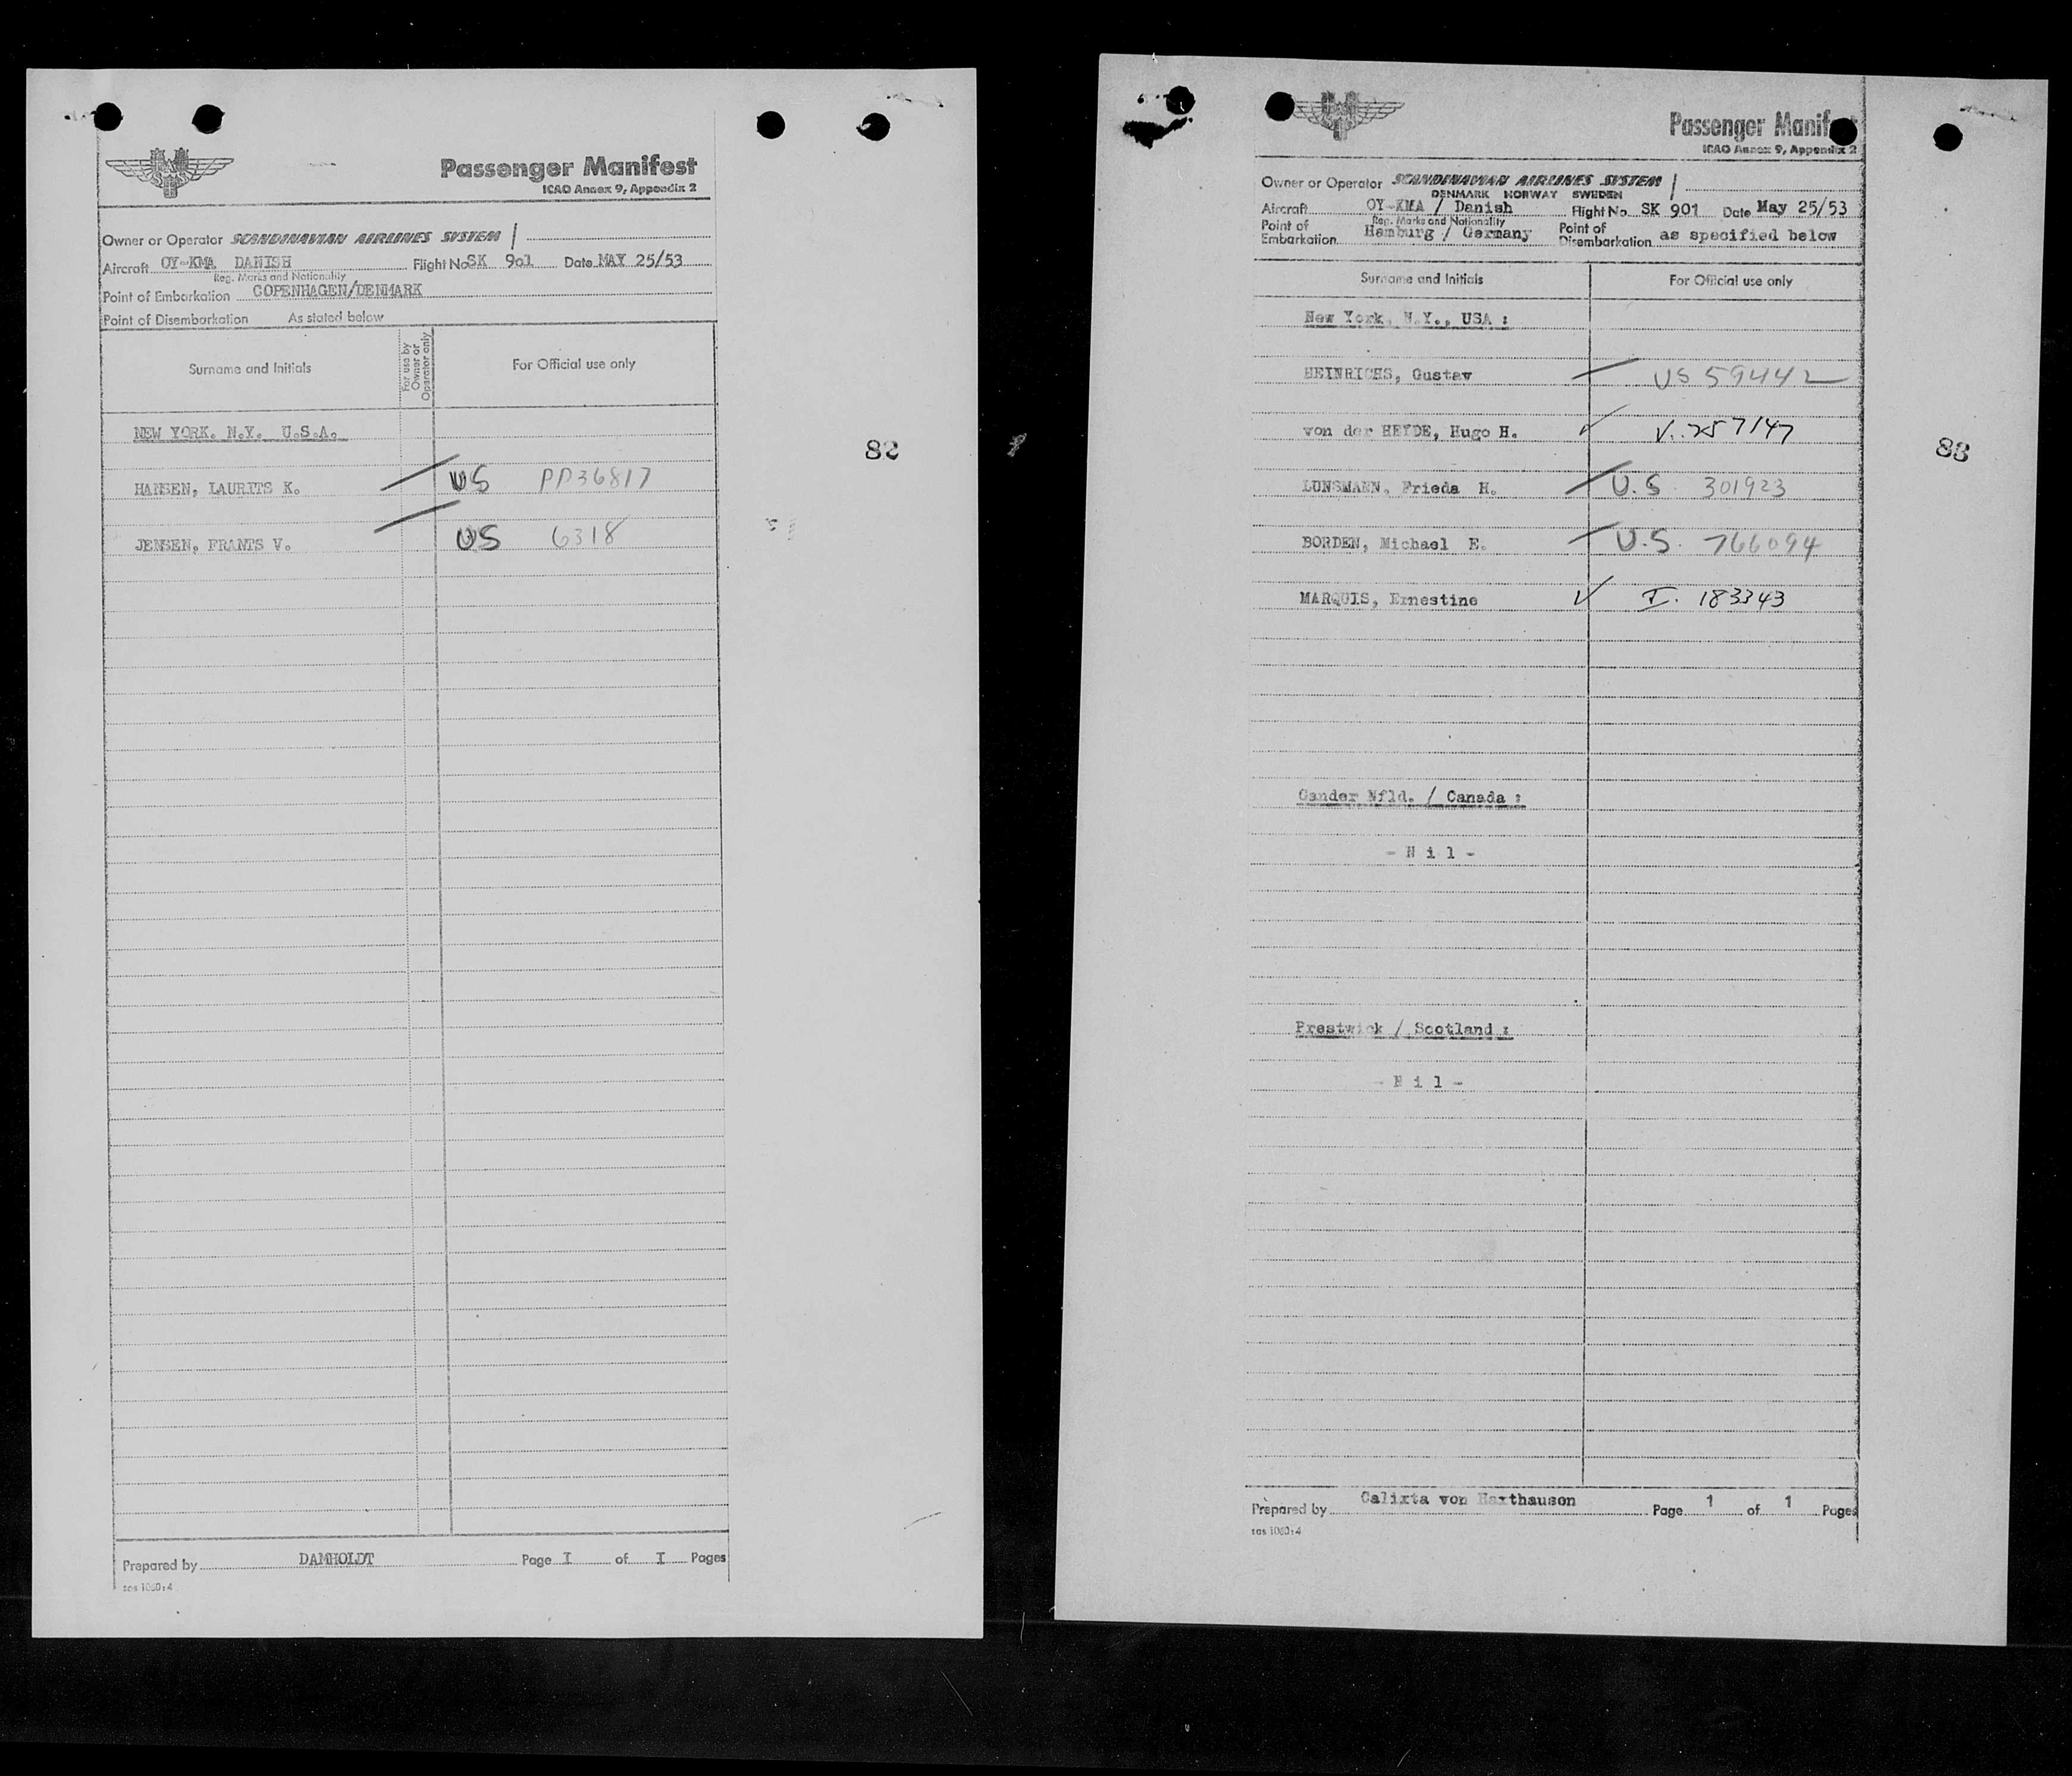 Passenger Manifest
ICAO Annex 9, Appendix 2
Owner or Operator SCANDINAVIAN AIRLINES SYSTEM
Aircraft OY-KMA DANISH Flight No SK 901 Date MAY 25/53
Reg. Marks and Nationality
Point of Embarkation COPENHAGEN/DENMARK
Point of Disembarkation As stated below
Surname and Initials For use by Owner or Operator only For Official use only
NEW YORK. N.Y. U.S.A.
82
HANSEN, LAURITS K. US PP36817
JENSEN, FRANTS V. US 6318
Prepared by DAMHOLDT Page I of I Pages
sas 1060:4
Passenger Manif
ICAO Annex 9, Appendix 2
Owner or Operator SCANDINAVIAN AIRLINES SYSTEM
DENMARK NORWAY SWEDEN
Aircraft OY-KMA / Danish Flight No. SK 901 Date May 25/53
Reg. Marks and Nationality
Point of Embarkation Hamburg / Germany Point of Disembarkation as specified below
Surname and Initials For Official use only
New York, N.Y., USA :
HEINRICHS, Gustav US 59442
von der HEYDE, Hugo H. V. 757147
83
LUNSMANN, Frieda H. U.S. 301923
BORDEN, Michael E. U.S. 766094
MARQUIS, Ernestine I. 183343
Gander Nfld. / Canada :
- N i l -
Prestwick / Scotland :
- N i l -
Prepared by Calixta von Haxthausen Page 1 of 1 Pages
sas 1060:4